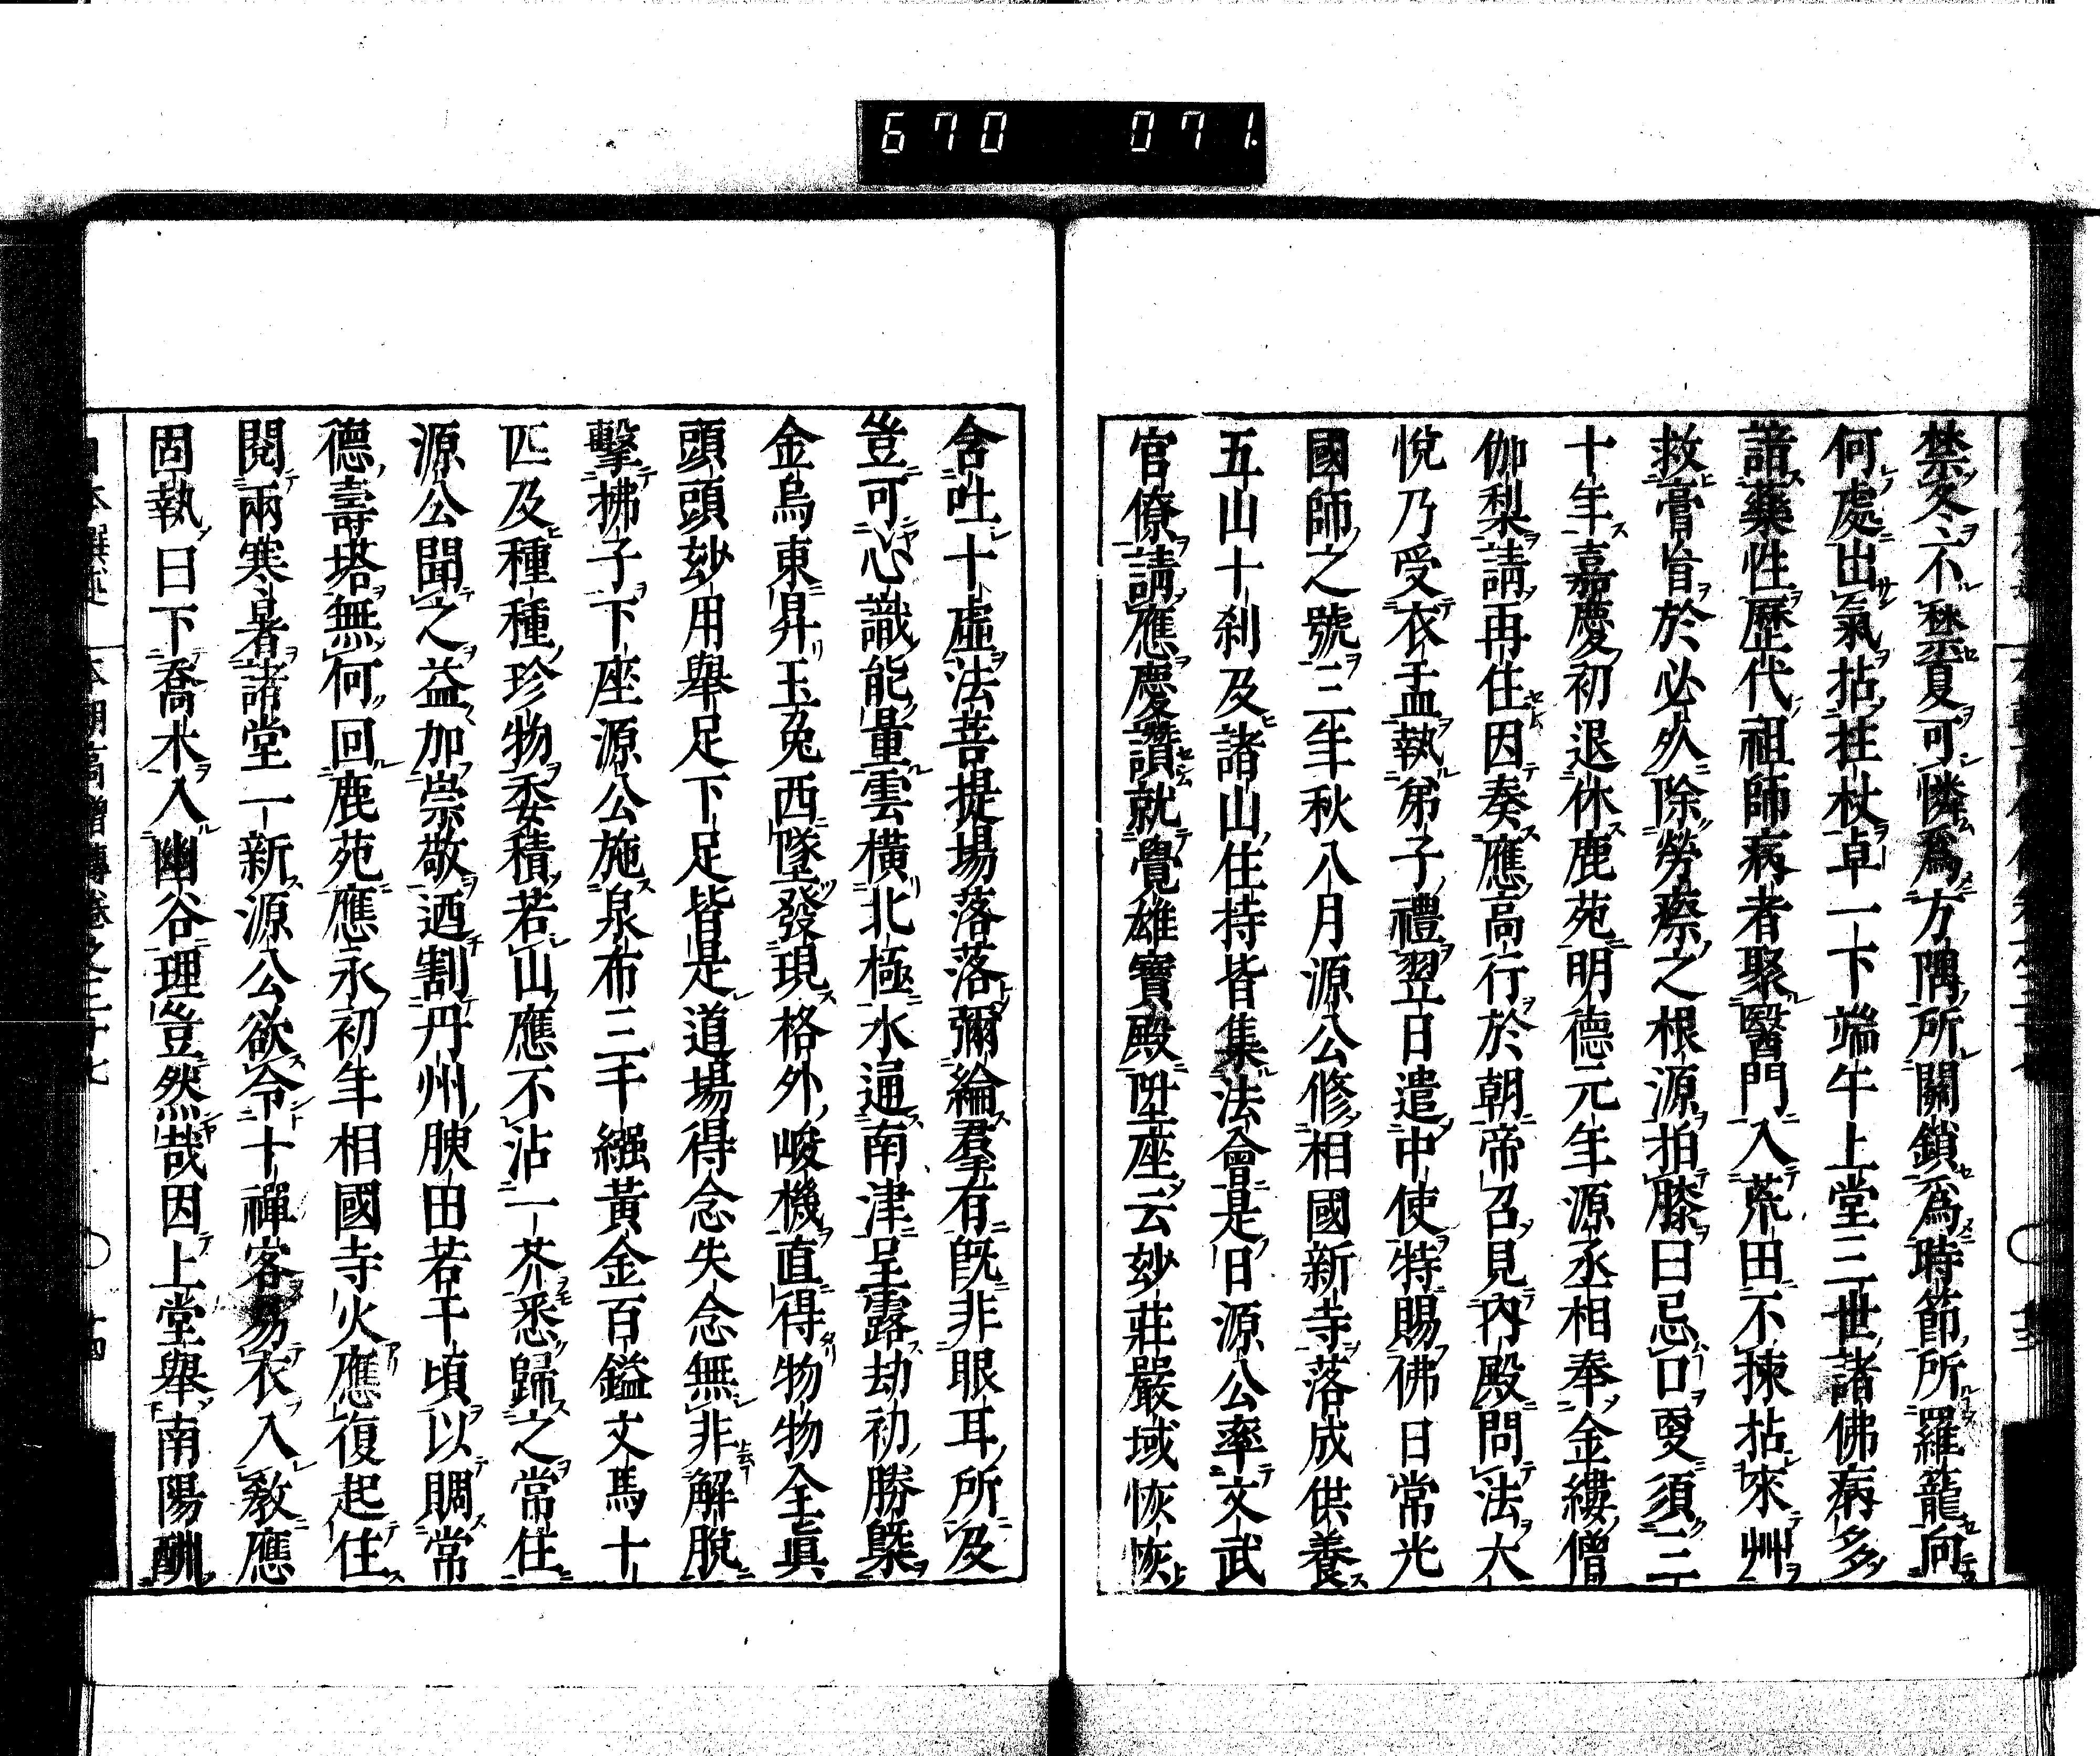 670 071.
禁冬不禁夏可憐爲方隅所關鎖爲時節所羅籠向
何處出氣拈拄杖卓一下端午上堂三世諸佛病多
諳藥性歷代祖師病者聚醫門入荒田不揀拈來艸
救膏肓於必死除勞瘵之根源拍膝曰忌口更須三
十年嘉慶初退休鹿苑明德元年源丞相奉金縷僧
伽梨請再住因奏應高行於朝帝召見內殿問法大
悅乃受衣盂執弟子禮翌日遣中使特賜佛日常光
國師之號三年秋八月源公修相國新寺落成供養
五山十刹及諸山住持皆集法會是日源公率文武
官僚請應慶讚就覺雄寶殿陞座云玅莊嚴域恢恢
含吐十虛法菩提場落落彌綸羣有旣非眼耳所及
豈可心識能量雲橫北極水通南津呈露劫初勝槩
金烏東昇玉兔西墜發現格外峻機直得物物全眞
頭頭玅用舉足下足皆是道場得念失念無非解脫
擊拂子下座源公施泉布三千繦黃金百鎰文馬十
匹及種種珍物委積若山應不沾一芥悉歸之常住
源公聞之益加崇敬迺割丹州腴田若干頃以賙常
德壽塔無何回鹿苑應永初年相國寺火應復起住
閱兩寒暑諸堂一新源公欲令十禪客易衣入敎應
固執曰下喬木入幽谷理豈然哉因上堂舉南陽酬
本朝高僧傳卷之三十七 十四